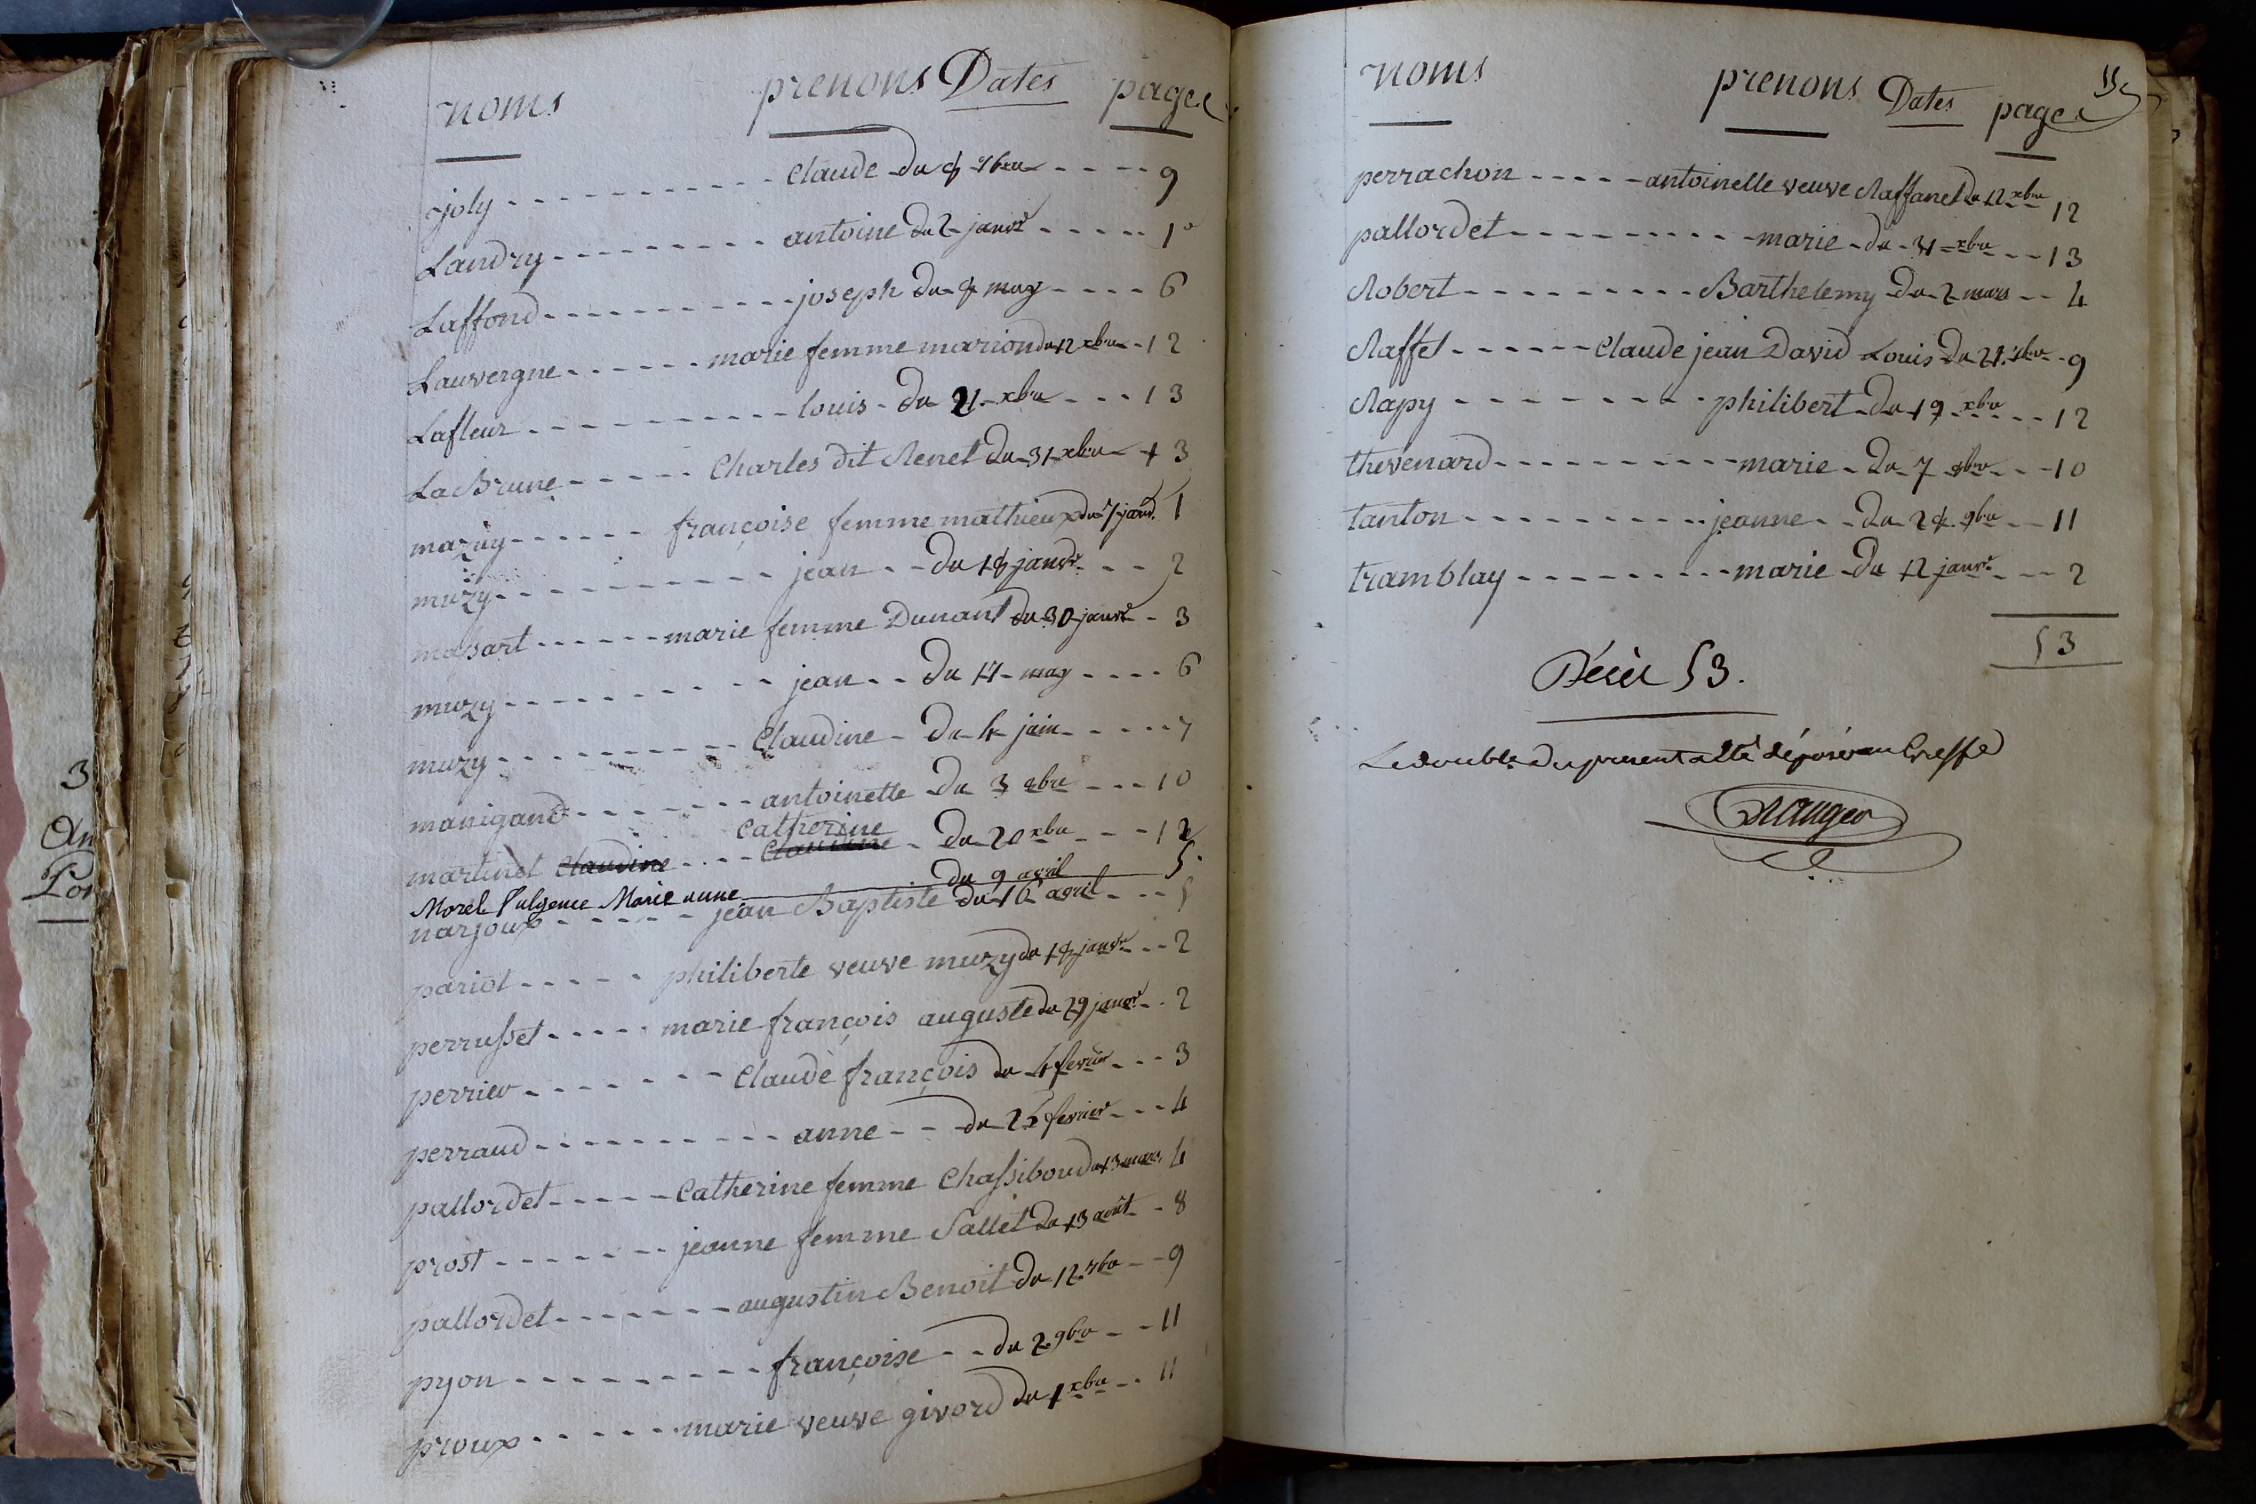 noms prenons Dates pages
joly - - - - - - - - - - - Claude du 8 7bre - - - - 9
Landry - - - - - - - - - antoine du 2 janvr - - - - - 1
Laffond - - - - - - - - - joseph du 8 may - - - - 6
Lauvergne - - - - - - marie femme marion du 12 xbre - 12
Lafleur - - - - - - - - - - louis - du 21 xbre - - - 13
LaBrune - - - - - Charles dit Renet du 31 xbre - 13
mazuy - - - - - - françoise femme mathieux du 7 janvr. 1
muzy - - - - - - - - - - jean - - du 18 janvr. - - - 2
masart - - - - - - marie femme Dunant du 30 janvr - 3
muzy - - - - - - - - - jean - - du 17 may - - - - 6
muzy - - - - - - - - - Claudine - du 4 juin - - - - - 7
manigand - - - - - - - antoinette du 3 8bre - - - 10
Catherine
martinet Claudine - - - - Claudine - du 20 xbre - - - 12
Morel Fulgence Marie anne du 9 avril 5
narjoux - - - - - - jean Baptiste du 16 avril - - - 5
pariot - - - - - philiberte veuve muzy du 18 janvr - - 2
perrusset - - - - - marie françois auguste du 29 janvr - - 2
perrier - - - - - - - Claude françois du 4 fevrier - - - 3
perraud - - - - - - - - - - anne - - du 25 fevrier - - - 4
pallordet - - - - - Catherine femme Chassiboud du 13 mars 4
prost - - - - - - - jeanne femme Sallet du 13 août - 8
pallordet - - - - - - - augustin Benoit du 12 7bre - - 9
pyon - - - - - - - - - - françoise - - du 2 9bre - - 11
proux - - - - - - marie veuve givord du 1 xbre - - 11
noms prenons Dates pages
perrachon - - - - - antoinette veuve Raffanel du 12 xbre 12
pallordet - - - - - - - - - marie - du - 31 - xbre - - - 13
Robert - - - - - - - - - Barthelemy du 2 mars - - 4
Raffet - - - - - - Claude jean David Louis du 21 7bre - 9
Rapy - - - - - - - - - philibert - du 19 xbre - - - 12
thevenard - - - - - - - - - - marie - du 7 8bre - - - 10
tanton - - - - - - - - - - jeanne - - du 28 9bre - - 11
tramblay - - - - - - - - - marie - du 12 janvr. - - - 2
53
Décès 53.
Le double du present a été déposé au Greffe